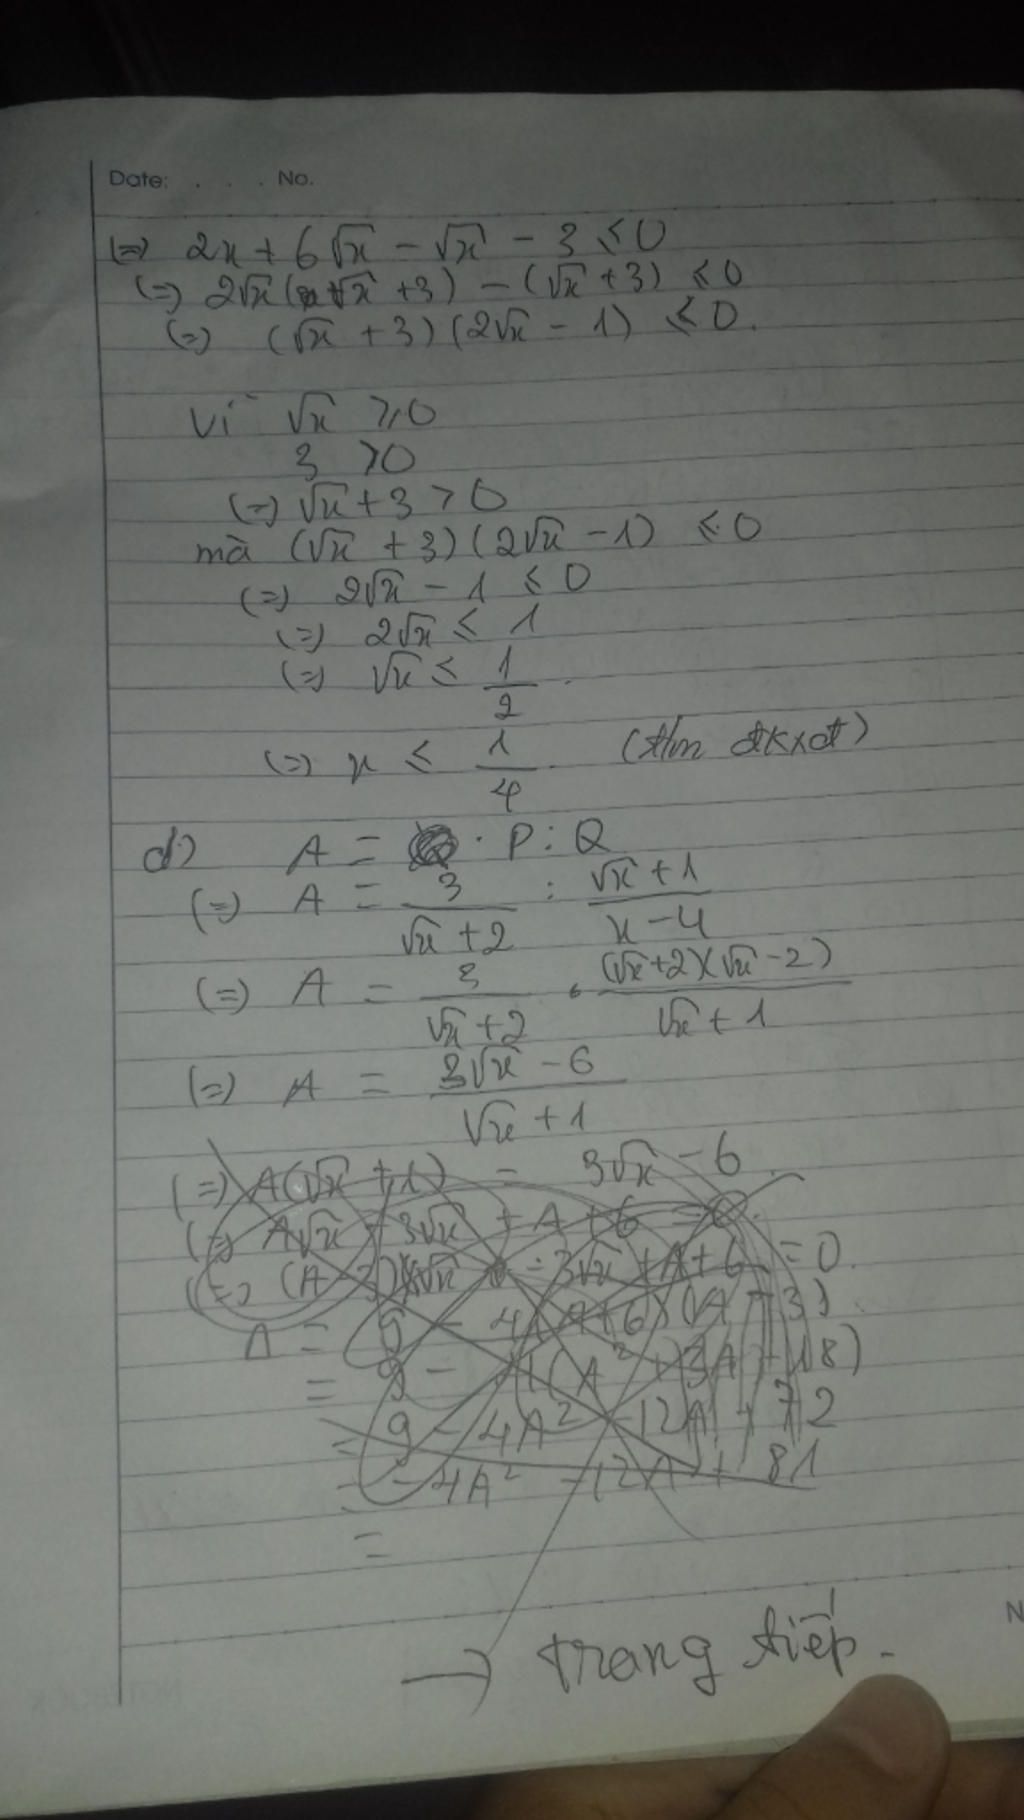 Date: . . . No.
(=) 2x + 6√x - √x - 3 ≤ 0
(=) 2√x (√x + 3) - (√x + 3) ≤ 0
(=) (√x + 3)(2√x - 1) ≤ 0.
Vì √x ≥ 0
3 > 0
(=) √x + 3 > 0
mà (√x + 3)(2√x - 1) ≤ 0
(=) 2√x - 1 ≤ 0
(=) 2√x ≤ 1
(=) √x ≤ 1/2.
(=) x ≤ 1/4. (t/m đkxđ)
d) A = . P : Q
(=) A = 3/(√x + 2) : (√x + 1)/(x - 4)
(=) A = 3/(√x + 2) . (√x + 2)(√x - 2)/(√x + 1)
(=) A = (3√x - 6)/(√x + 1)
(=) A(√x + 1) = 3√x - 6.
(=) A√x - 3√x + A + 6 = 0.
- 3√x + A + 6 = 0
9 - 4A² - 12A + 72
= - 4A² - 12A + 81
=
→ trang tiếp.